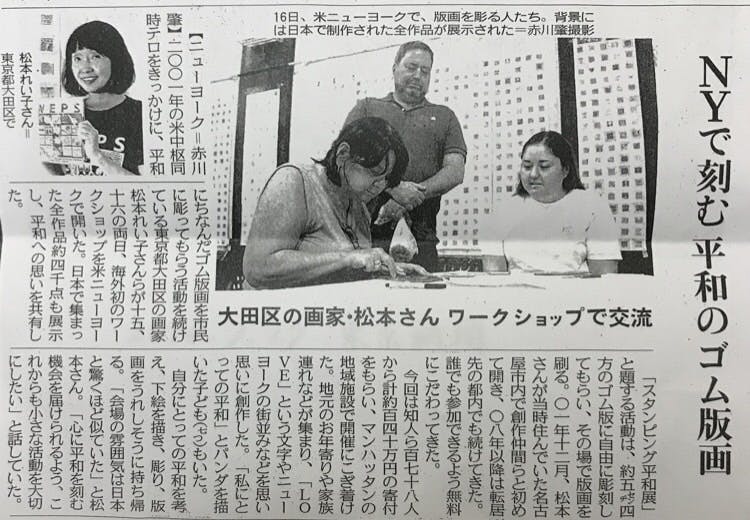 NYで刻む 平和のゴム版画
16日、米ニューヨークで、版画を彫る人たち。背景に
は日本で制作された全作品が展示された=赤川肇撮影
大田区の画家・松本さん ワークショップで交流
松本れい子さん=
東京都大田区で
【ニューヨーク=赤川
肇】二〇〇一年の米中枢同
時テロをきっかけに、平和
にちなんだゴム版画を市民
に彫ってもらう活動を続け
ている東京都大田区の画家
松本れい子さんらが十五、
十六の両日、海外初のワー
クショップを米ニューヨー
クで開いた。日本で集まっ
た全作品約四千点も展示
し、平和への思いを共有し
た。
「スタンピング平和展」
と題する活動は、約五㌢四
方のゴム版に自由に彫刻し
てもらい、その場で版画を
刷る。〇一年十二月、松本
さんが当時住んでいた名古
屋市内で創作仲間らと初め
て開き、〇八年以降は転居
先の都内でも続けてきた。
誰でも参加できるよう無料
にこだわってきた。
今回は知人ら百七十八人
から計約百四十万円の寄付
をもらい、マンハッタンの
地域施設で開催にこぎ着け
た。地元のお年寄りや家族
連れなどが集まり、「LO
VE」という文字やニュー
ヨークの街並みなどを思い
思いに創作した。「私にと
っての平和」とパンダを描
いた子ども(七つ)もいた。
自分にとっての平和を考
え、下絵を描き、彫り、版
画をうれしそうに持ち帰
る。「会場の雰囲気は日本
と驚くほど似ていた」と松
本さん。「心に平和を刻む
機会を届けられるよう、こ
れからも小さな活動を大切
にしたい」と話していた。